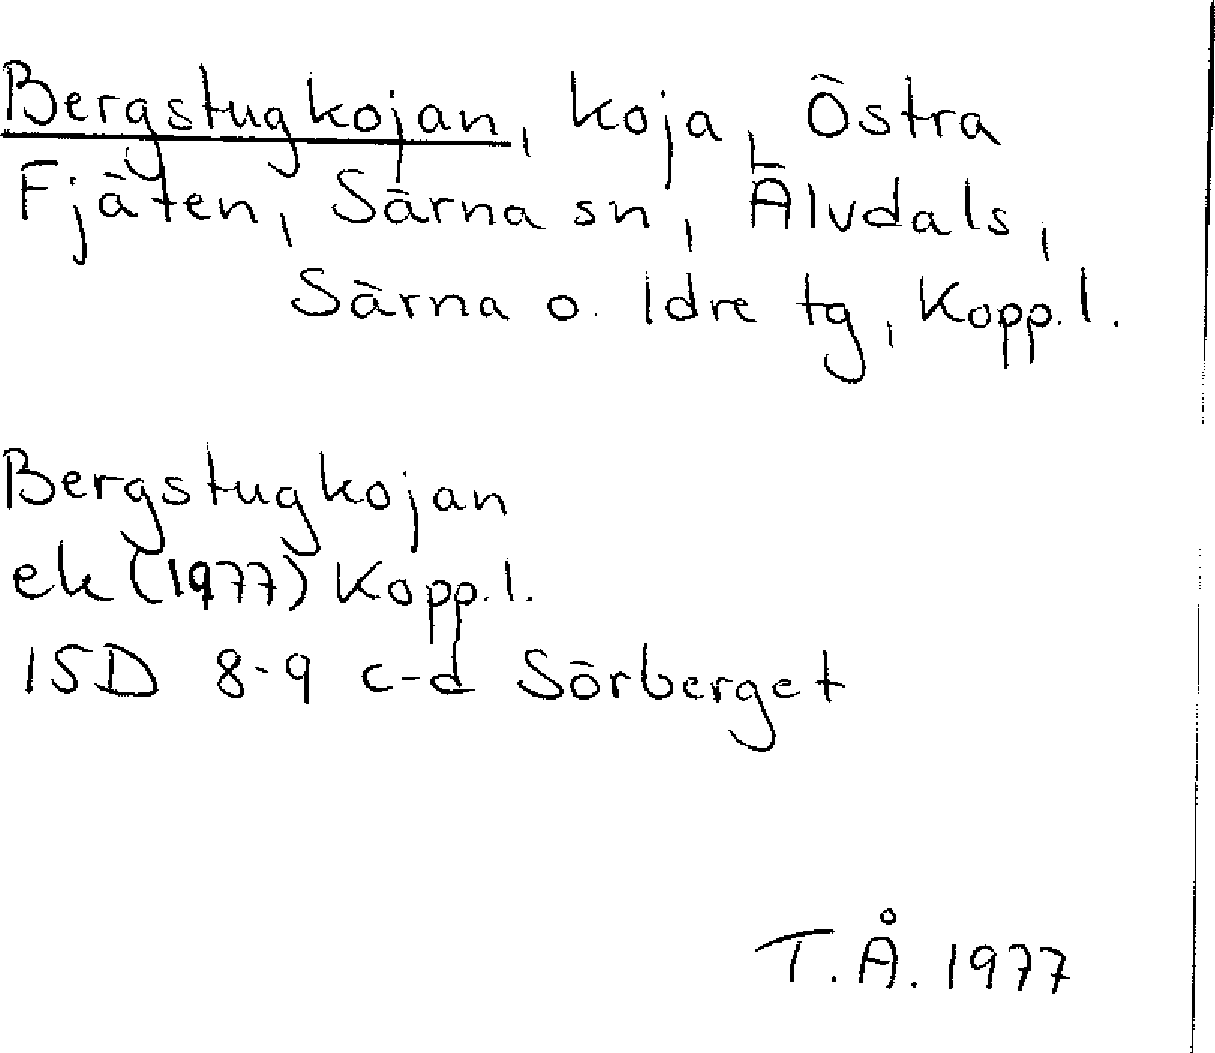 Bergstugkojan, koja, Östra
Fjäten, Särna sn, Älvdals,
Särna o. Idre tg, Kopp. l.
Bergstugkojan
ek (1977) Kopp. l.
15D 8-9 c-d Sörberget
T. Å. 1977